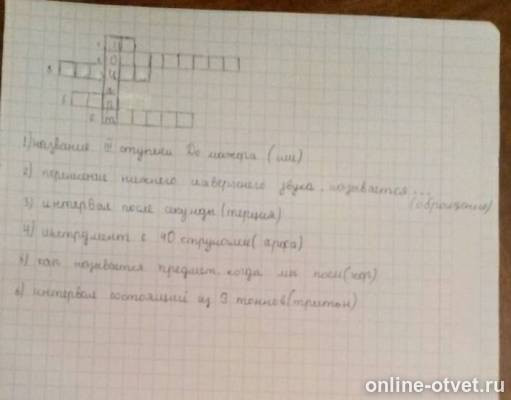 1) название III ступени До мажора (ми)
2) перенесение нижнего и верхнего звука, называется...
(обращение)
3) интервал после секунды (терция)
4) инструмент с 40 струнами (арфа)
5) как называется предмет, когда мы поем (хор)
6) интервал состоящий из 3 тонов (тритон)
online-otvet.ru